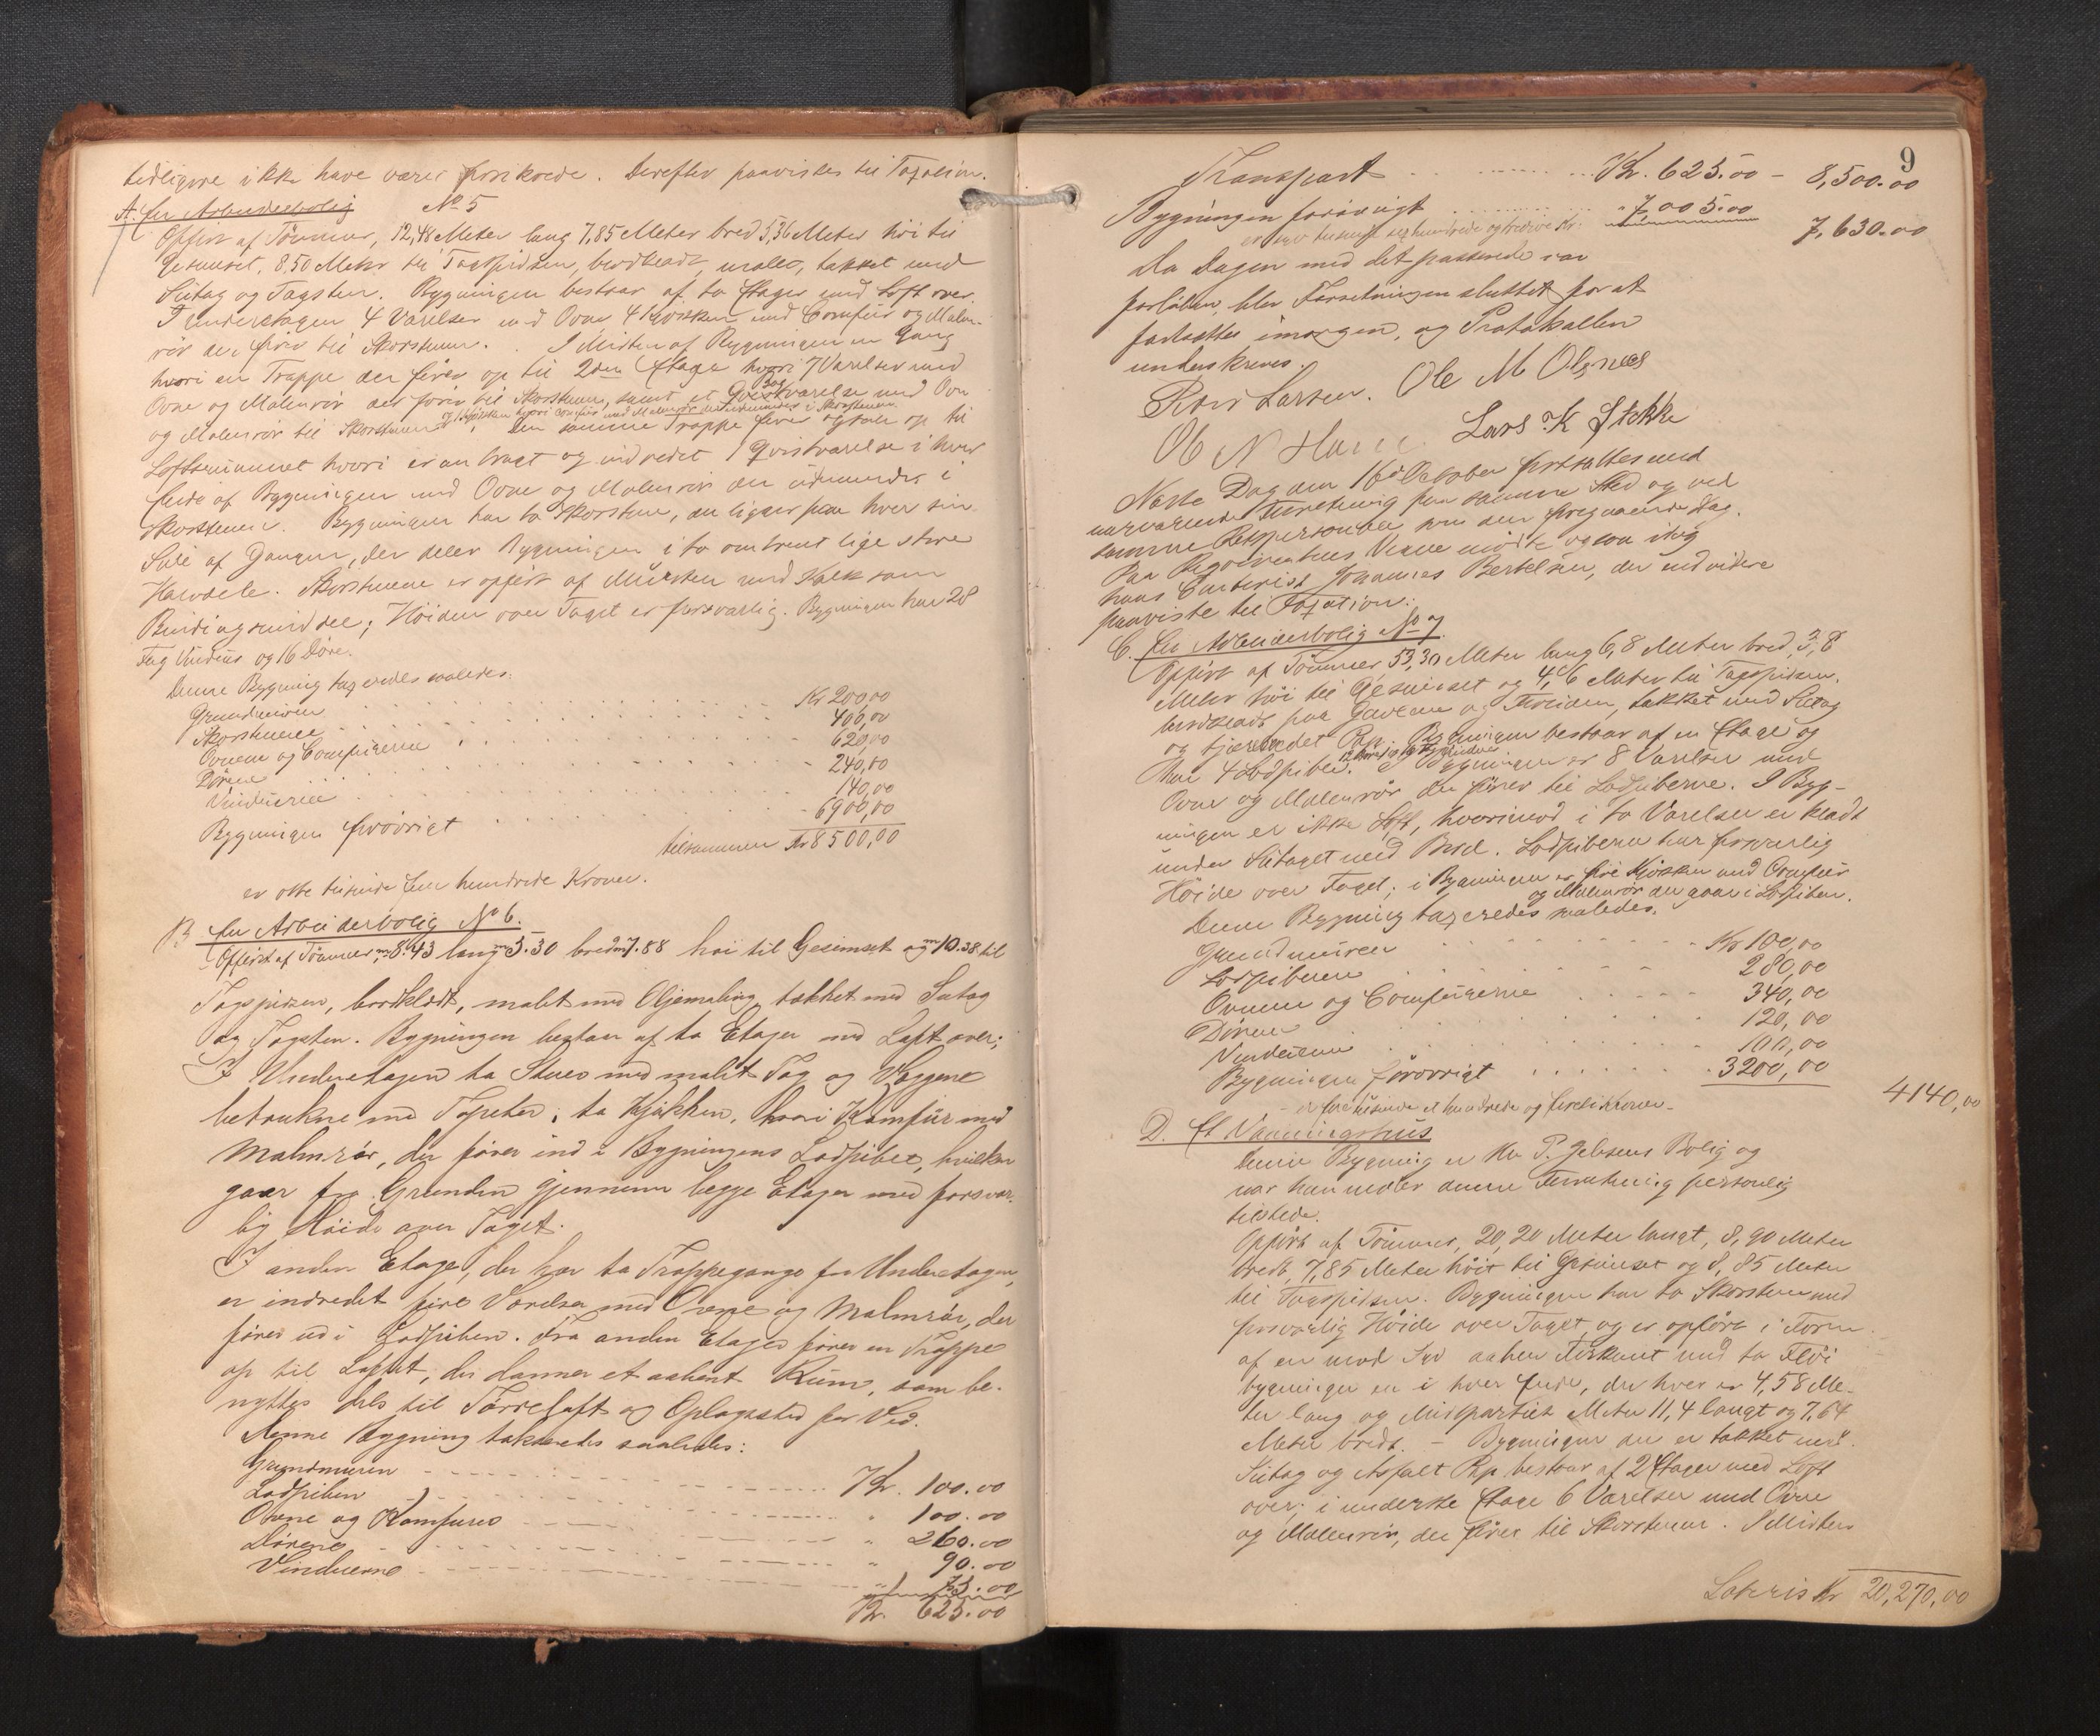 tidligere ikke have været forsikrede. Derefter paavistes til Taxation.
A. En Arbeiderbolig No 5
Opført af Tømmer, 12,48 Meter lang 7,85 Meter bred 5,36 Meter høi til
Gesimset, 8,50 Meter til Tagspidsen, bordklædt, malet, tækket med
Sutag og Tagsten. Bygningen bestaar af to Etager med Loft over.
I Underetagen 4 Værelser med Ovne 4 Kjøkken med Comfur og Malm-
rør der fører til Skorstenen. I Midten af Bygningen en Gang
hvori en Trappe der fører op til 2den Etage hvori 7 Værelser med
Ovne og Malmrør der fører til Skorstenen, samt et Værelse med Ovn
og Malmrør til Skorstenen. Den samme Trappe fører op til
Loftsrummet hvori er anbragt og indredet 1 Qvistværelse i hver
Ende af Bygningen med Ovne og Malmrør der udmunder i
Skorstenen. Bygningen har to Skorstene, der ligger paa hver sin
Side af Gangen, der deler Bygningen i to omtrent lige store
Halvdele. Skorstenene er opført af Mursten med Kalk som
Bindingsmiddel; Høiden over Taget er forsvarlig. Bygningen har 28
Fag Vinduer og 16 Døre.
Denne Bygning taxeredes saaledes:
Grundmuren Kr 200,00
Skorstenene 400,00
Ovnene og Comfurerne 620,00
Dørene 240,00
Vinduerne 140,00
Bygningen forøvrigt 6900,00
tilsammen Kr 8500,00
er otte tusinde fem hundrede Kroner.
B En Arbeiderbolig No 6.
Opført af Tømmer, m 8.43 lang m 5.30 bred m 7.88 høi til Gesimset og m 10.38 til
Tagspidsen, bordklædt, malet med Oljemaling, tækket med Sutag
og Tagsten. Bygningen bestaar af to Etager med Loft over;
I Underetagen to Stuer med malet Tag og Væggene
betrukne med Tapeter, to Kjøkken, hvori Komfur med
Malmrør, der fører ind i Bygningens Lodpibe, hvilken
gaar fra Grunden gjennem begge Etager med forsvar-
lig Høide over Taget.
I anden Etage, der har to Trappegange fra Underetagen,
er indredet fire Værelser med Ovne og Malmrør, der
fører ud i Lodpiben. Fra anden Etage fører en Trappe
op til Loftet, der danner et aabent Rum, som be-
nyttes dels til Tørreloft og Oplagssted for Ved.
Denne Bygning takseredes saaledes:
Grundmuren Kr. 100.00
Lodpiben " 100.00
Ovne og Komfurer " 260.00
Dørene " 90.00
Vinduerne " 75.00
Kr. 625.00
9
Transport Kr. 625.00 - 8,500.00
Bygningen forøvrigt " 7,005.00
er syv tusinde sexhundrede og tredive Kr. 7,630.00
Da Dagen med det passerede var
forløben, blev Forretningen sluttet for at
fortsættes imorgen, og Protokollen
underskreves.
Roer Larsen. Ole M Olsnes
Ob N Lars K Stekke
Næste Dag den 16de October fortsattes med
nærværende Forretning paa samme Sted og ved
samme Retspersonale som den foregaaende Dag.
Paa Reqvirentens Vegne mødte ogsaa idag
hans Contorist Johannes Bertelsen, der udvidere
paaviste til Taxation:
C. En Arbeiderbolig No 7.
Opført af Tømmer, 53,30 Meter lang 6,8 Meter bred, 3,8
Meter høi til Gesimset og 4,6 Meter til Tagspidsen,
bordklædt paa Gavlene og Forsiden, tækket med Sutag
og tjæredet Pap. Bygningen bestaar af en Etage og
har 4 Lodpiber. I Bygningen er 8 Værelser med
Ovne og Malmrør der fører til Lodpiberne. I Byg-
ningen er ikke Loft, hvorimod i to Værelser er klædt
under Sutaget med Bord. Lodpiberne har forsvarlig
Høide over Taget; i Bygningen er fire Kjøkken med Comfur
og Malmrør der gaar i Lodpiben.
Denne Bygning taxeredes saaledes.
Grundmuren Kr 100,00
Lodpiberne 280,00
Ovnene og Comfurerne 340,00
Dørene 120,00
Vinduerne 100,00
Bygningen forøvrigt 3200,00
er fire tusinde et hundrede og firti Kroner 4140,00
D. Et Vaaningshus
Denne Bygning er Hr P. Jebsens Bolig og
var han under denne Forretning personlig
tilstede.
Opført af Tømmer, 20,20 Meter langt, 8,90 Meter
bredt, 7,85 Meter høit til Gesimset og 8,85 Meter
til Tagspidsen. Bygningen har to Skorstene med
forsvarlig Høide over Taget, og er opført i Form
af en mod Syd aaben Firkant med to Fløi
bygninger en i hver Ende, der hver er 4,58 Me-
ter lang og Midtpartiet Meter 11,4 langt og 7,64
Meter bredt. - Bygningen der er tækket med
Sutag og Asfalt Pap bestaar af 2 Etager med Loft
over; i underste Etage 6 Værelser med Ovne
og Malmrør, der fører til Skorstenen. I Midten
Lateris Kr 20,270,00